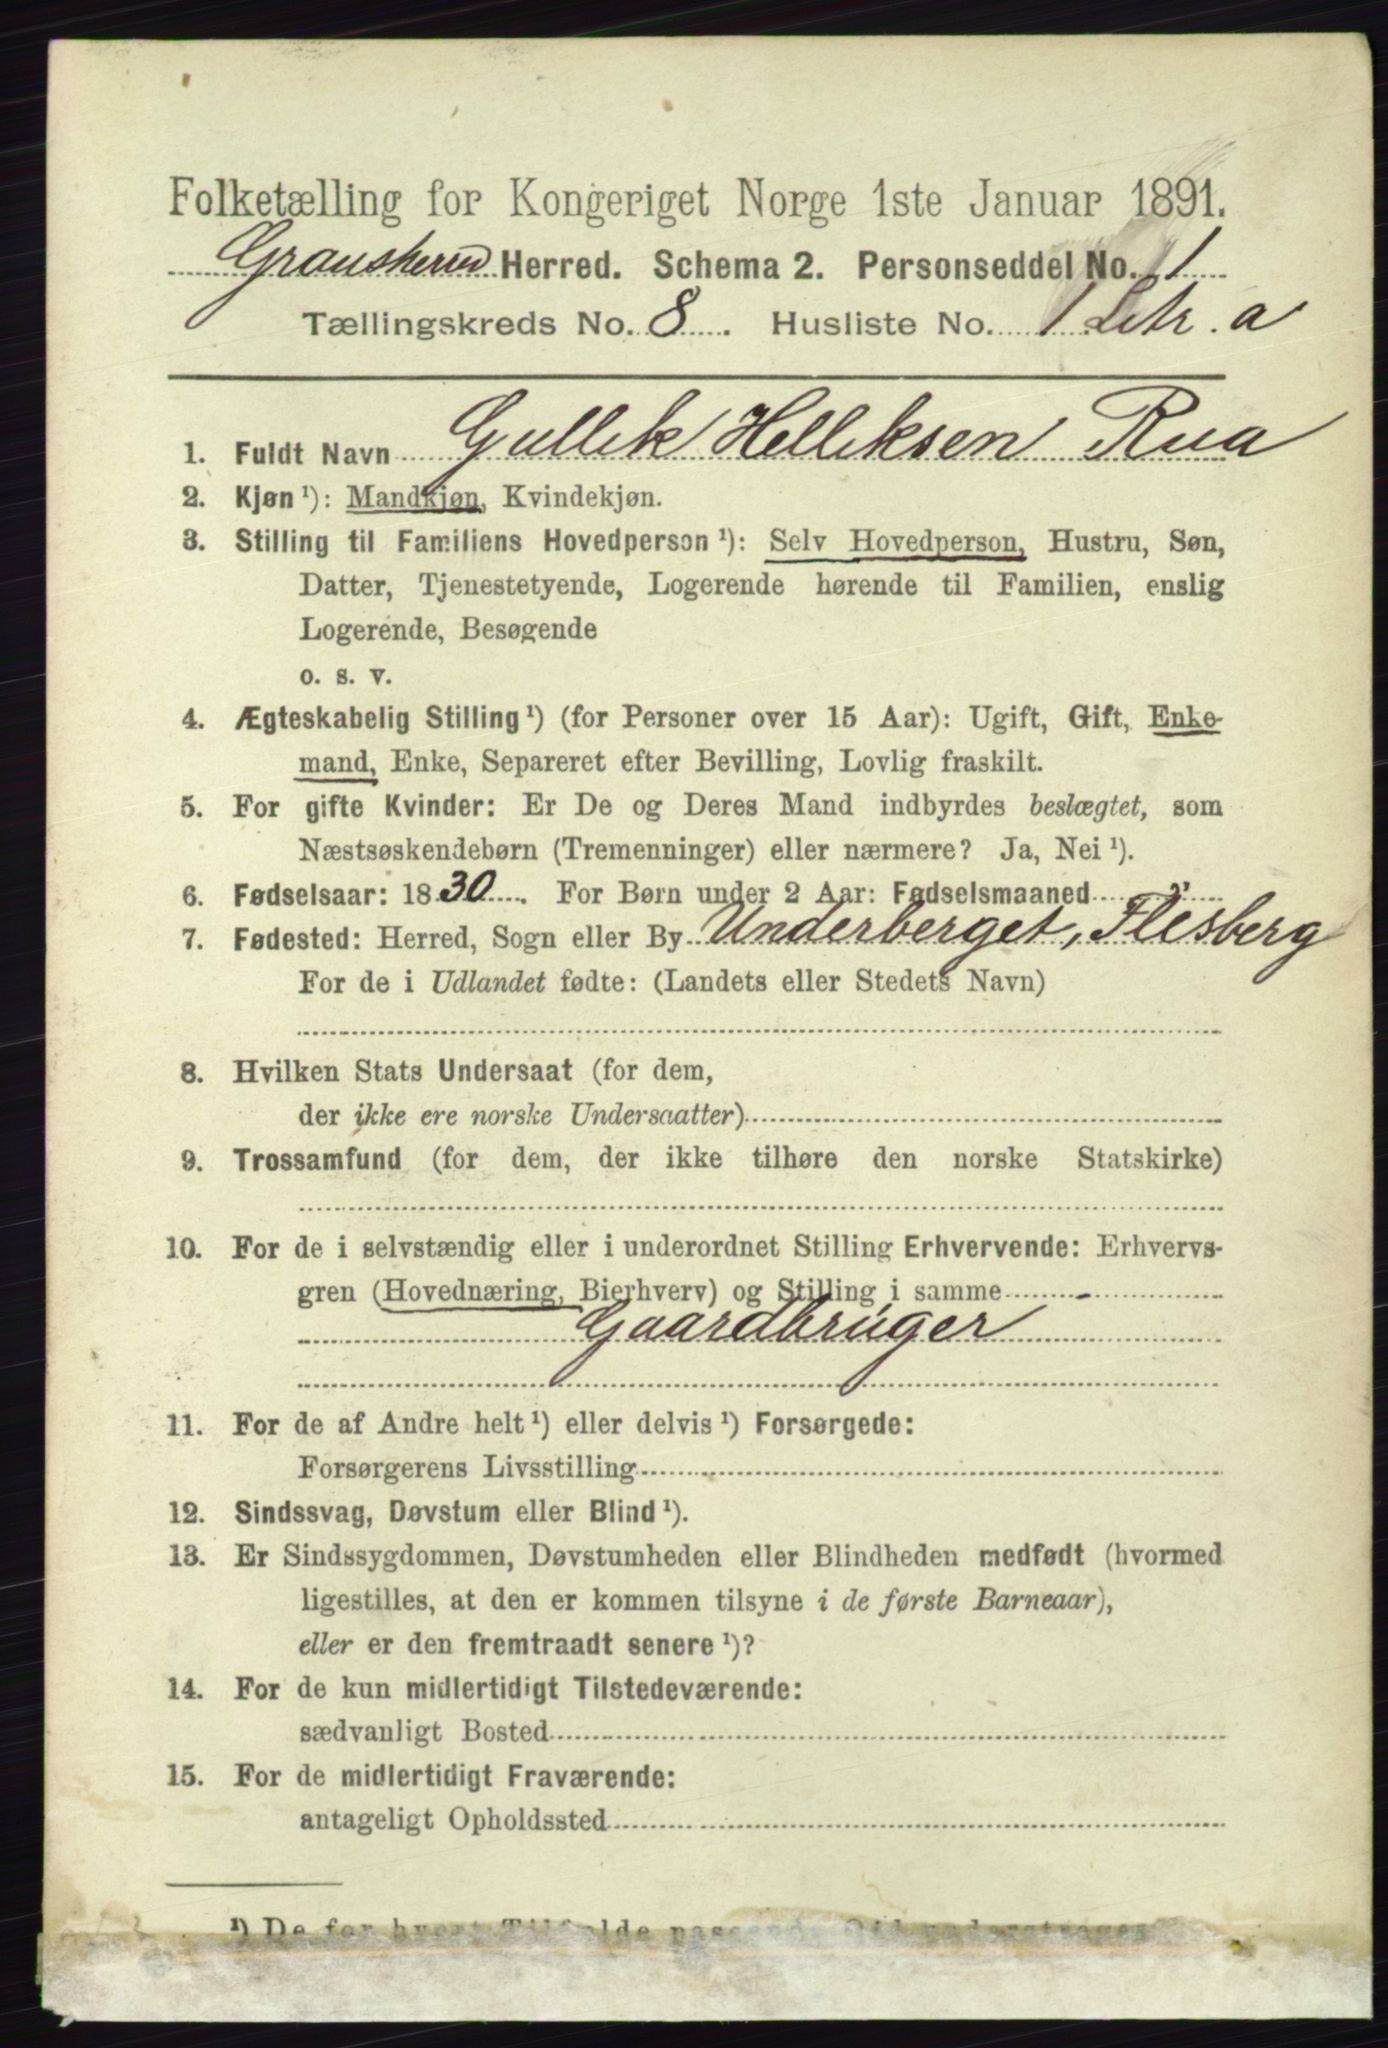 Folketælling for Kongeriget Norge 1ste Januar 1891.
Gransherred Herred. Schema 2. Personseddel No. 1
Tællingskreds No. 8. Husliste No. 1 Litr. a
1. Fuldt Navn Gullik Helliksen Rua
2. Kjøn ¹): Mandkjøn, Kvindekjøn.
3. Stilling til Familiens Hovedperson ¹): Selv Hovedperson, Hustru, Søn,
Datter, Tjenestetyende, Logerende hørende til Familien, enslig
Logerende, Besøgende
o. s. v.
4. Ægteskabelig Stilling ¹) (for Personer over 15 Aar): Ugift, Gift, Enke-
mand, Enke, Separeret efter Bevilling, Lovlig fraskilt.
5. For gifte Kvinder: Er De og Deres Mand indbyrdes beslægtet, som
Næstsøskendebørn (Tremenninger) eller nærmere? Ja, Nei ¹).
6. Fødselsaar: 1830. For Børn under 2 Aar: Fødselsmaaned "
7. Fødested: Herred, Sogn eller By Underberget, Flesberg
For de i Udlandet fødte: (Landets eller Stedets Navn)
8. Hvilken Stats Undersaat (for dem,
der ikke ere norske Undersaatter)
9. Trossamfund (for dem, der ikke tilhøre den norske Statskirke)
10. For de i selvstændig eller i underordnet Stilling Erhvervende: Erhvervs-
gren (Hovednæring, Bierhverv) og Stilling i samme
Gaardbruger
11. For de af Andre helt ¹) eller delvis ¹) Forsørgede:
Forsørgerens Livsstilling
12. Sindssvag, Døvstum eller Blind ¹).
13. Er Sindssygdommen, Døvstumheden eller Blindheden medfødt (hvormed
ligestilles, at den er kommen tilsyne i de første Barneaar),
eller er den fremtraadt senere ¹)?
14. For de kun midlertidigt Tilstedeværende:
sædvanligt Bosted
15. For de midlertidigt Fraværende:
antageligt Opholdssted
¹) De for hvert Tilfælde passende Ord understreges